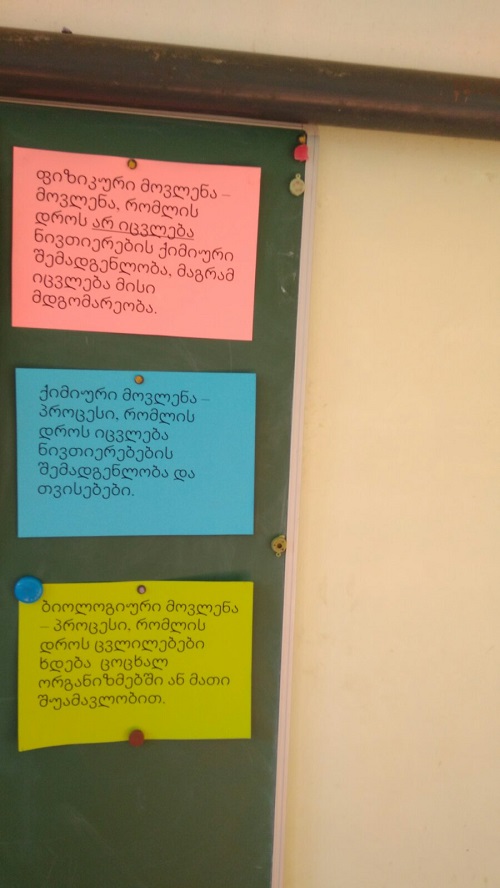 ფიზიკური მოვლენა –
მოვლენა, რომლის
დროს არ იცვლება
ნივთიერების ქიმიური
შემადგენლობა, მაგრამ
იცვლება მისი
მდგომარეობა.
ქიმიური მოვლენა –
პროცესი, რომლის
დროს იცვლება
ნივთიერებების
შემადგენლობა და
თვისებები.
ბიოლოგიური მოვლენა
– პროცესი, რომლის
დროს ცვლილებები
ხდება ცოცხალ
ორგანიზმებში ან მათი
შუამავლობით.